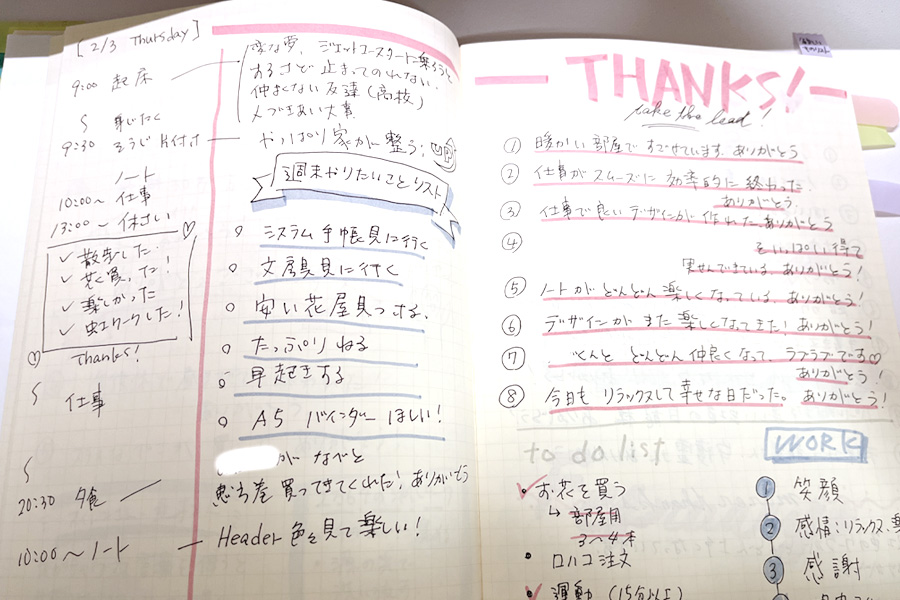 [2/3 Thursday]
9:00 起床
身じたく
9:30 そうじ 片付け
ノート
10:00〜 仕事
13:00〜 休けい
✓ 散歩した
✓ 花買った!
✓ 楽しかった
✓ 虹ワークした!
Thanks!
仕事
20:30 夕食
10:00〜ノート
変な夢、ジェットコースターに乗ろうと
するけど 止まってのれない。
仲よくない友達(高校)
人づきあい大事
やっぱり家が整う。
UP
週末やりたいことリスト
システム手帳見に行く
文房具見に行く
安い花屋見つける、
たっぷりねる
早起きする
A5 バインダー ほしい!
が なべと
恵方巻 買ってきてくれた!ありがとう
Header 色々見て楽しい!
THANKS!
take the lead!
① 暖かい部屋で すごせています。ありがとう
② 仕事がスムーズに 効率的に 終わった
ありがとう。
③ 仕事で良いデザインが 作れた ありがとう
④
を いっぱい 得て
実せんできている、ありがとう!
⑤ ノートが どんどん楽しくなっている、ありがとう!
⑥ デザインが また 楽しくなってきた! ありがとう!
⑦ くんと どんどん仲良くなって、ラブラブです♡
ありがとう!
⑧ 今日も リラックスして 幸せな日だった。ありがとう!
to do list
お花を買う
↳ 部屋用
3〜4本
・ロハコ注文
運動 (15分以上)
WORK
1 笑顔
2 感情:リラックス、
3 感謝